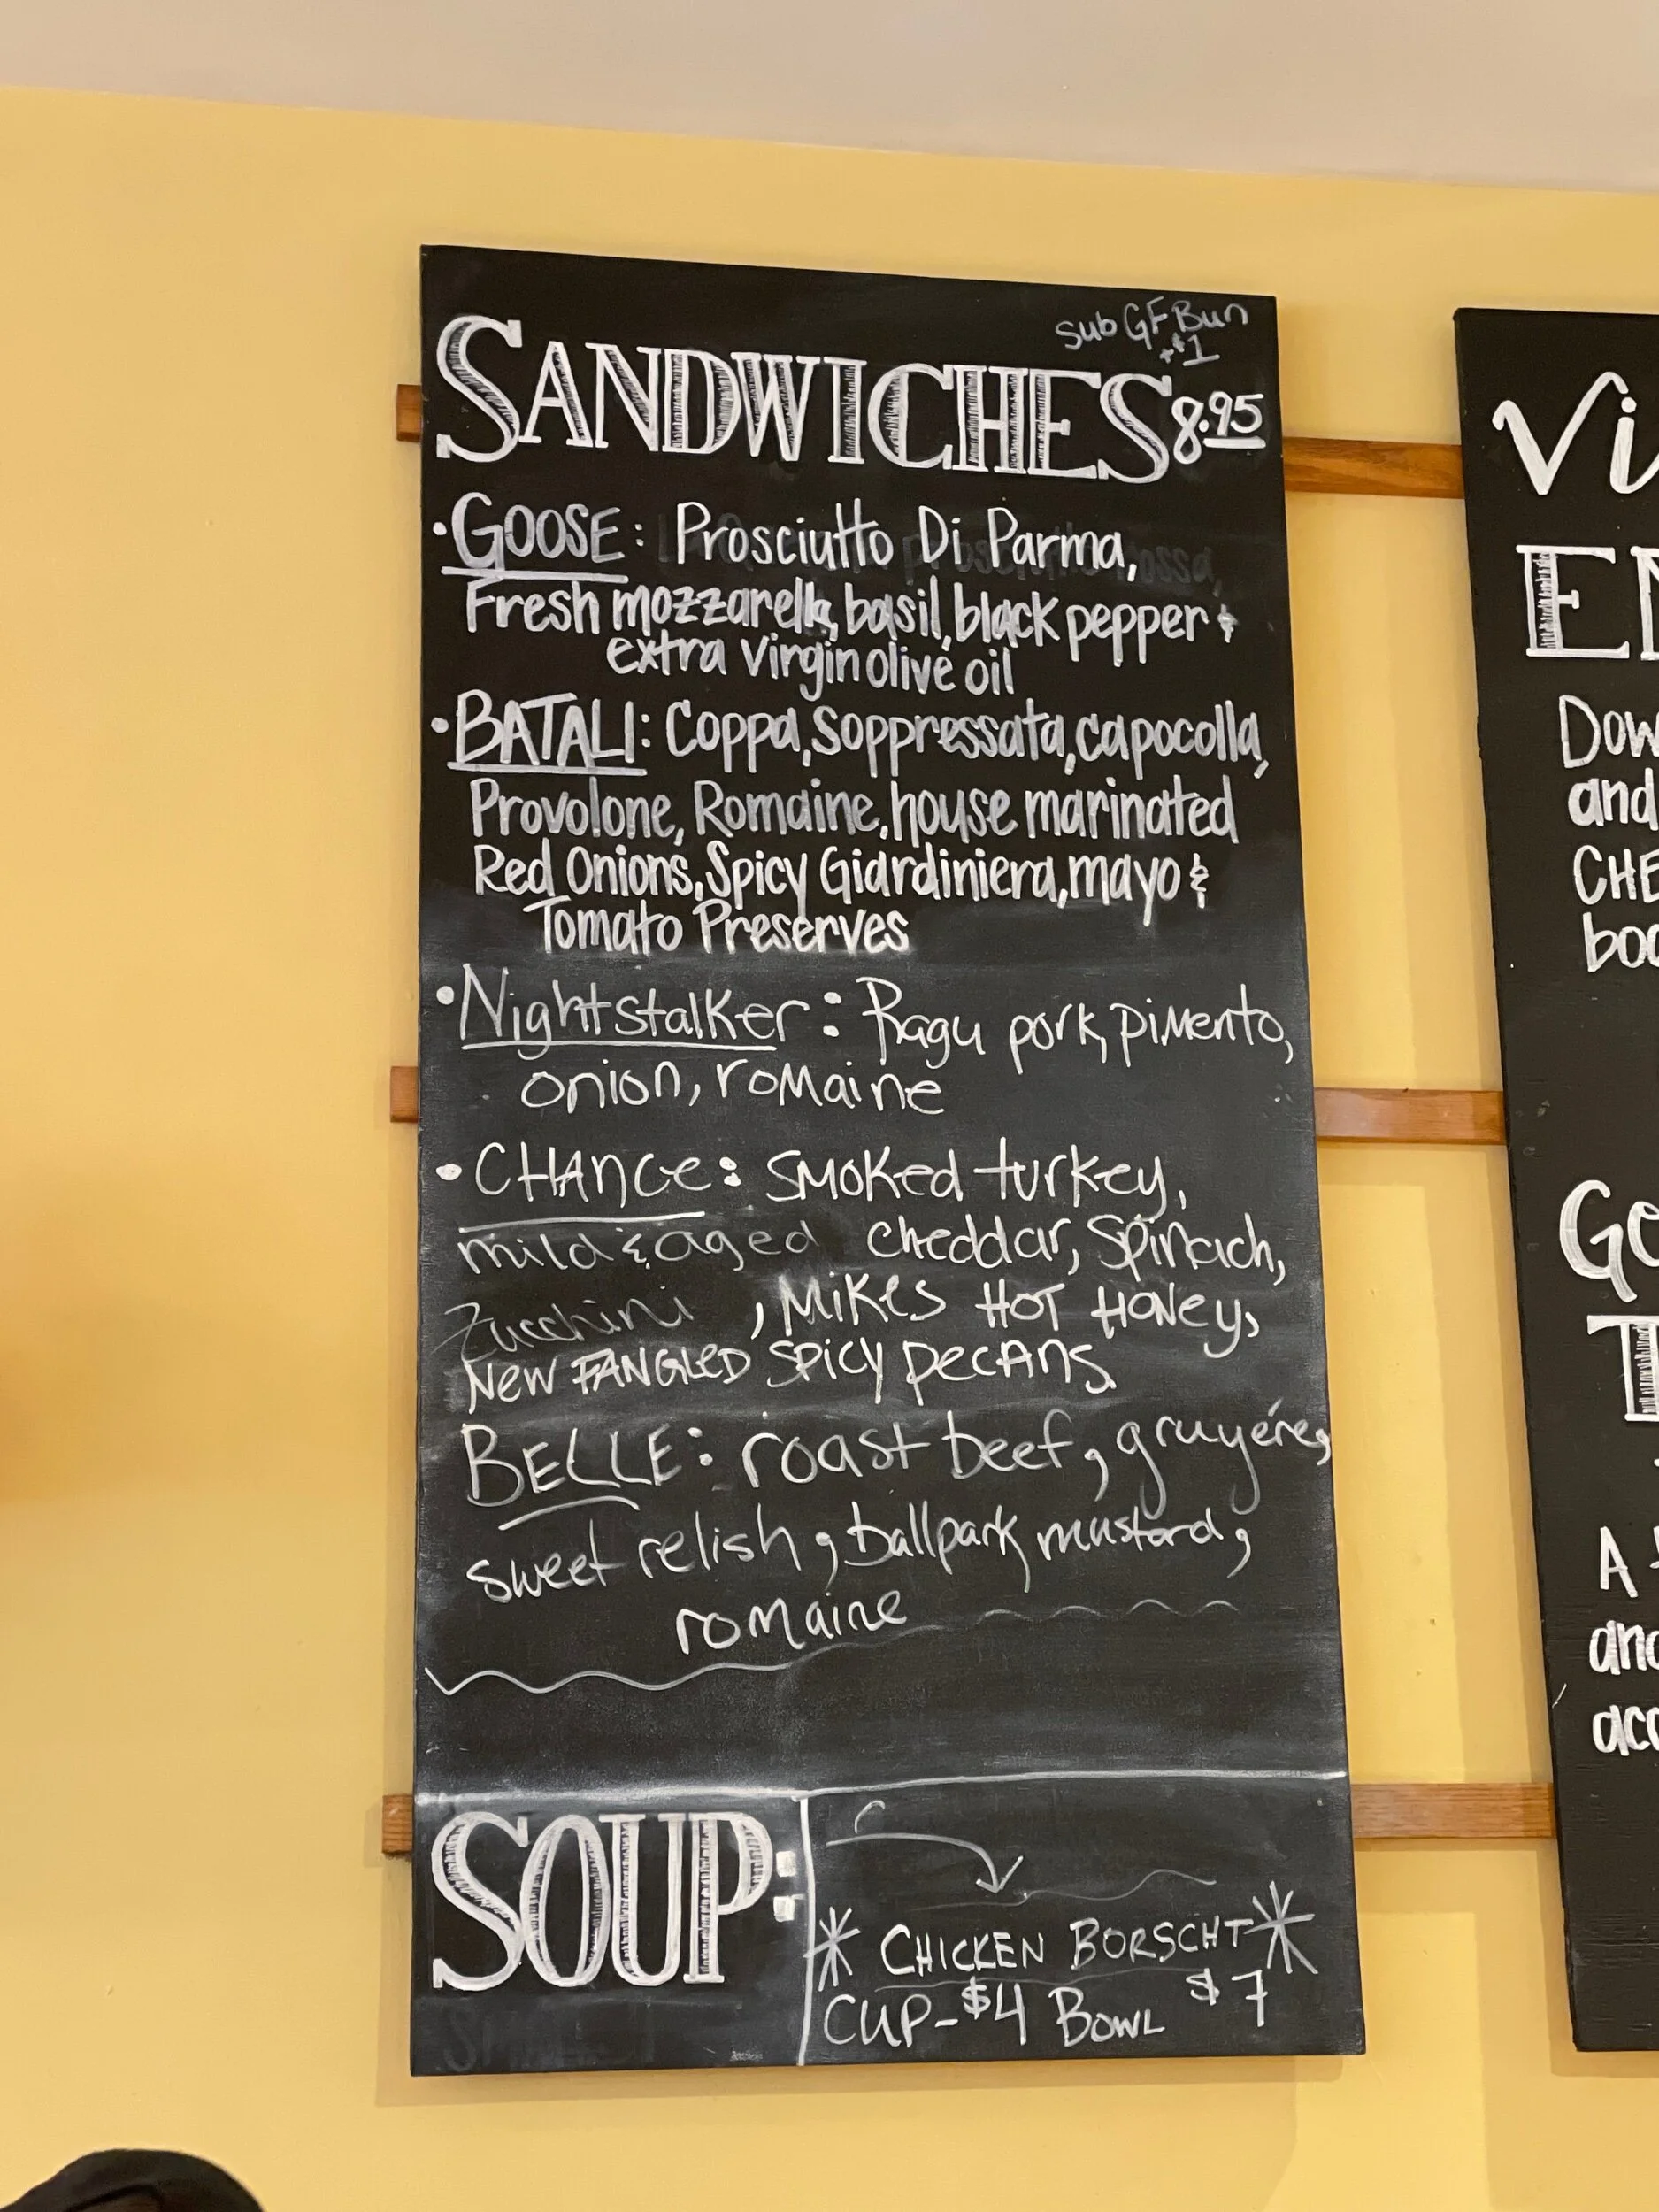 Sub GF Bun
+$1
SANDWICHES 8.95
• GOOSE: Prosciutto Di Parma,
Fresh mozzarella, basil, black pepper &
extra virgin olive oil
• BATALI: Coppa, Soppressata, capocolla,
Provolone, Romaine, house marinated
Red Onions, Spicy Giardiniera, mayo &
Tomato Preserves
• Nightstalker: Ragu pork, pimento,
onion, romaine
• CHANCE: Smoked turkey,
mild & aged cheddar, Spinach,
Zucchini , MIKES HOT HONEY,
NEW FANGLED SPICY PECANS
BELLE: roast beef, gruyére,
sweet relish, ballpark mustard,
romaine
SOUP:
* CHICKEN BORSCHT *
CUP-$4 BOWL $7
Vi
E
Dow
and
CHE
boc
Ge
T
A
and
acc